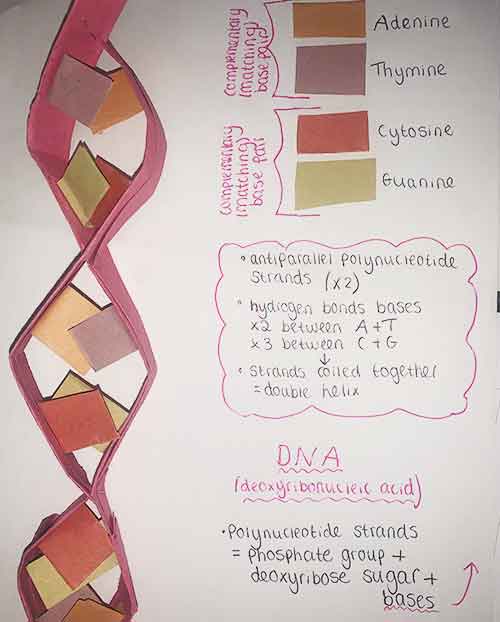 complementary
(matching)
base pair
Adenine
Thymine
complementary
(matching)
base pair
Cytosine
Guanine
• antiparallel polynucleotide
strands (x2)
• hydrogen bonds bases
x2 between A+T
x3 between C+G
↓
• strands coiled together
= double helix
DNA
(deoxyribonucleic acid)
• Polynucleotide strands
= phosphate group +
deoxyribose sugar +
bases